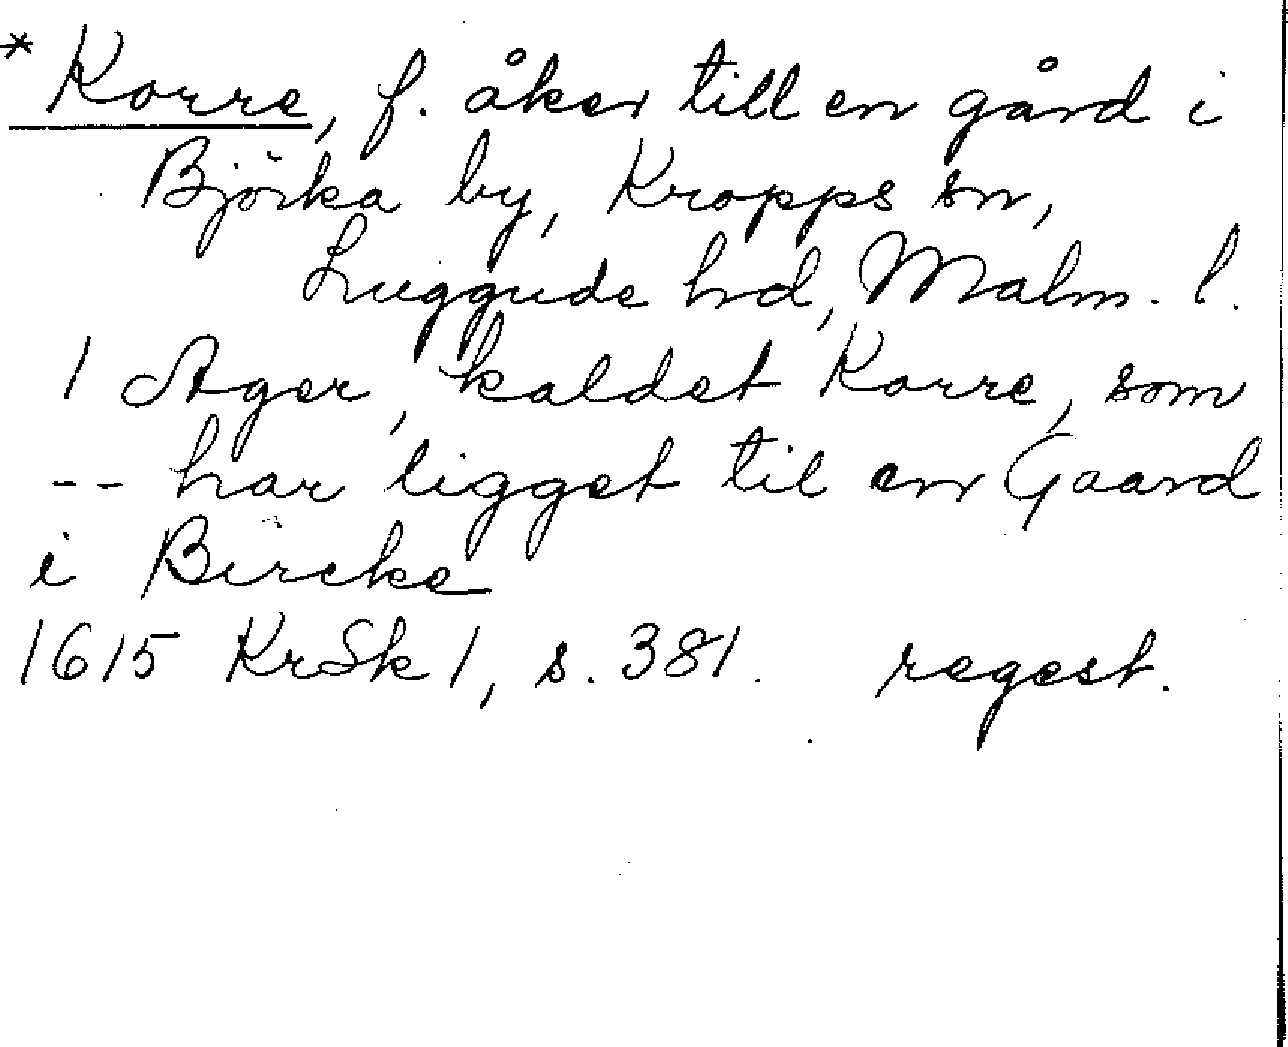 * Korre, f. åker till en gård i
Björka by, Kropps sn,
Luggude hd, Malm. l.
1 Ager, kaldet Korre, som
-- har ligget til en Gaard
i Bircke
1615 KrSk 1, s. 381. regest.